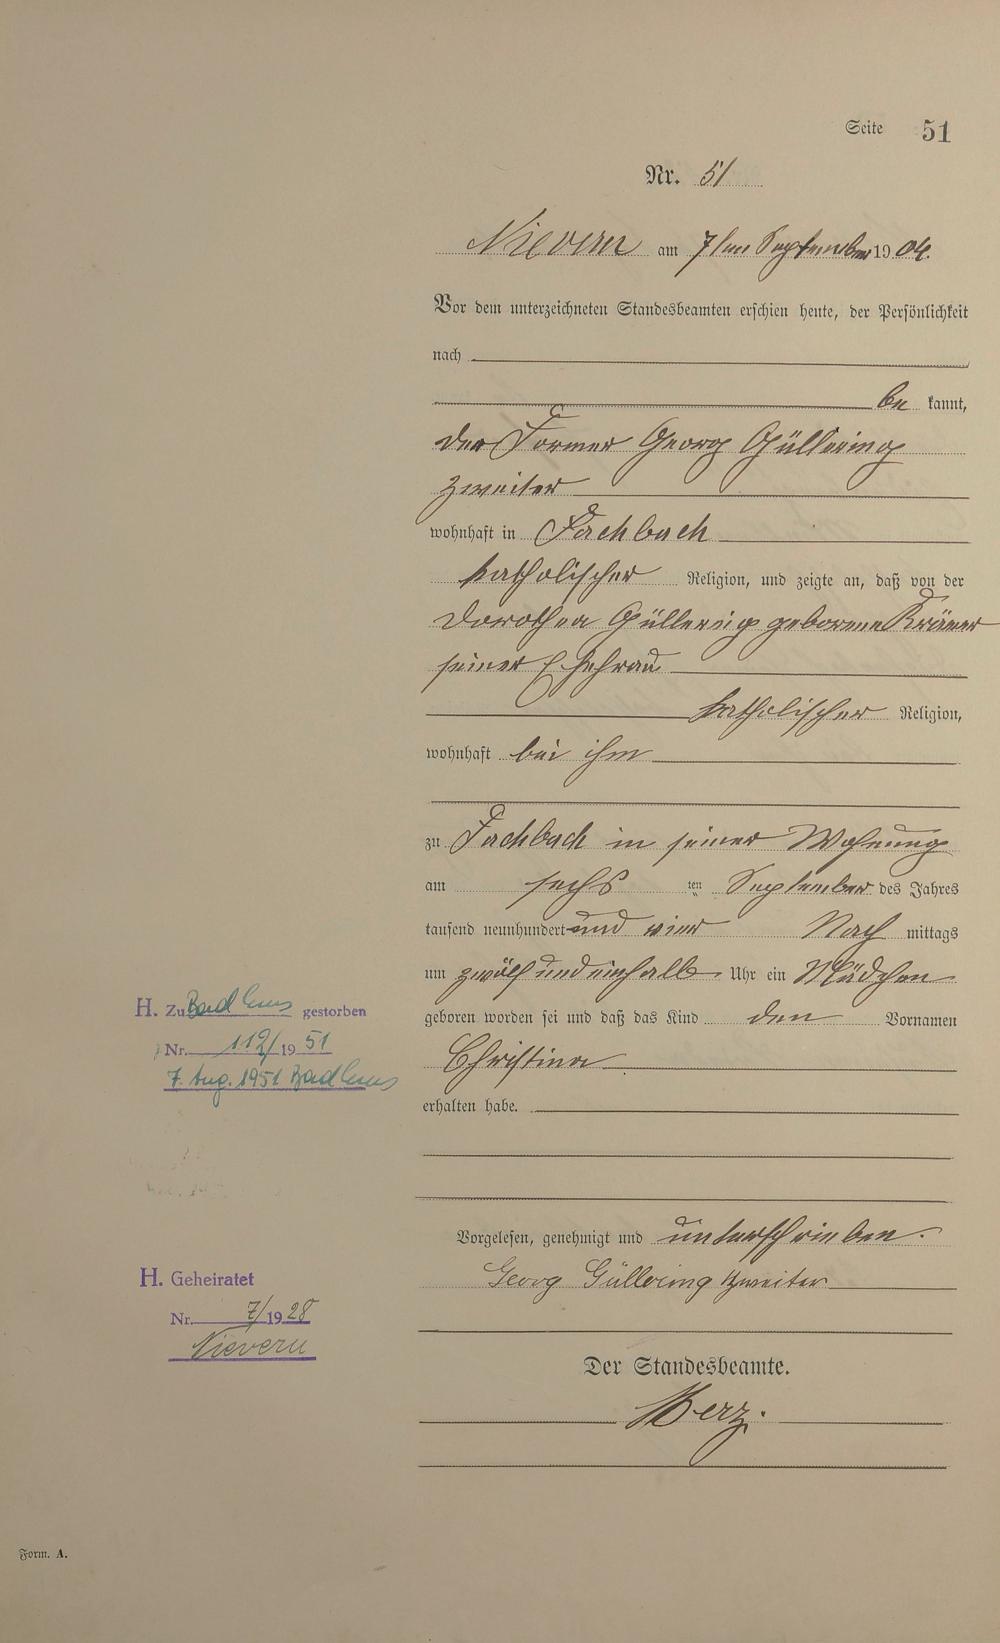 Seite 51
Nr. 51
Nievern am 7ten September 1904.
Vor dem unterzeichneten Standesbeamten erschien heute, der Persönlichkeit
nach
be kannt,
der Former Georg Güllering
zweiter
wohnhaft in Fachbach
katholischer Religion, und zeigte an, daß von der
Dorothea Güllering geborene Krämer
seiner Ehefrau
katholischer Religion,
wohnhaft bei ihm
zu Fachbach in seiner Wohnung
am sechs ten September des Jahres
tausend neunhundert und vier Nach mittags
um zwölf und einhalb Uhr ein Mädchen
geboren worden sei und daß das Kind den Vornamen
Christina
erhalten habe.
Vorgelesen, genehmigt und unterschrieben.
Georg Güllering zweiter
Der Standesbeamte.
Merz.
H. Zu Bad Ems gestorben
Nr. 112/1951
7. Aug. 1951 Bad Ems
H. Geheiratet
Nr. 7/1928
Nievern
Form. A.